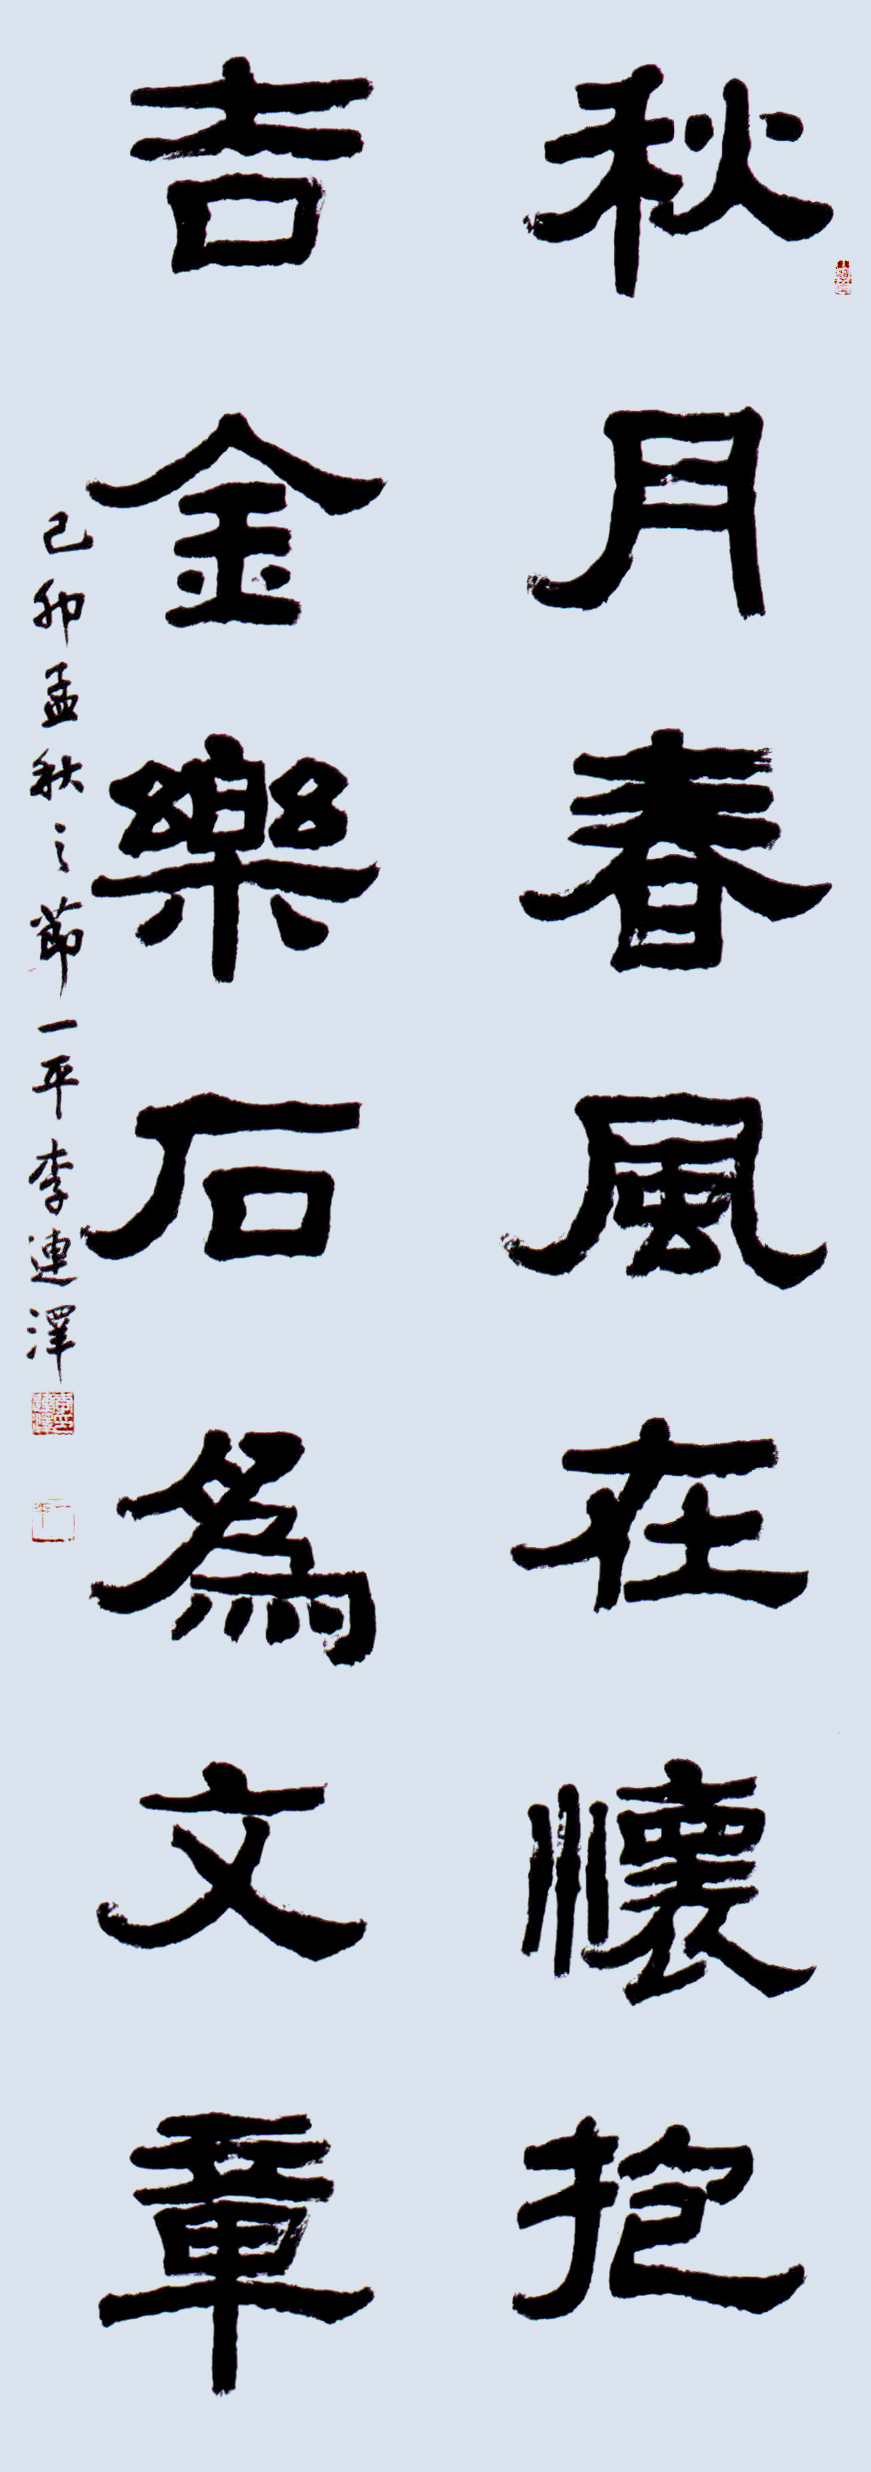 秋月春風在懷抱
吉金樂石為文章
己卯孟秋之節一平李連澤